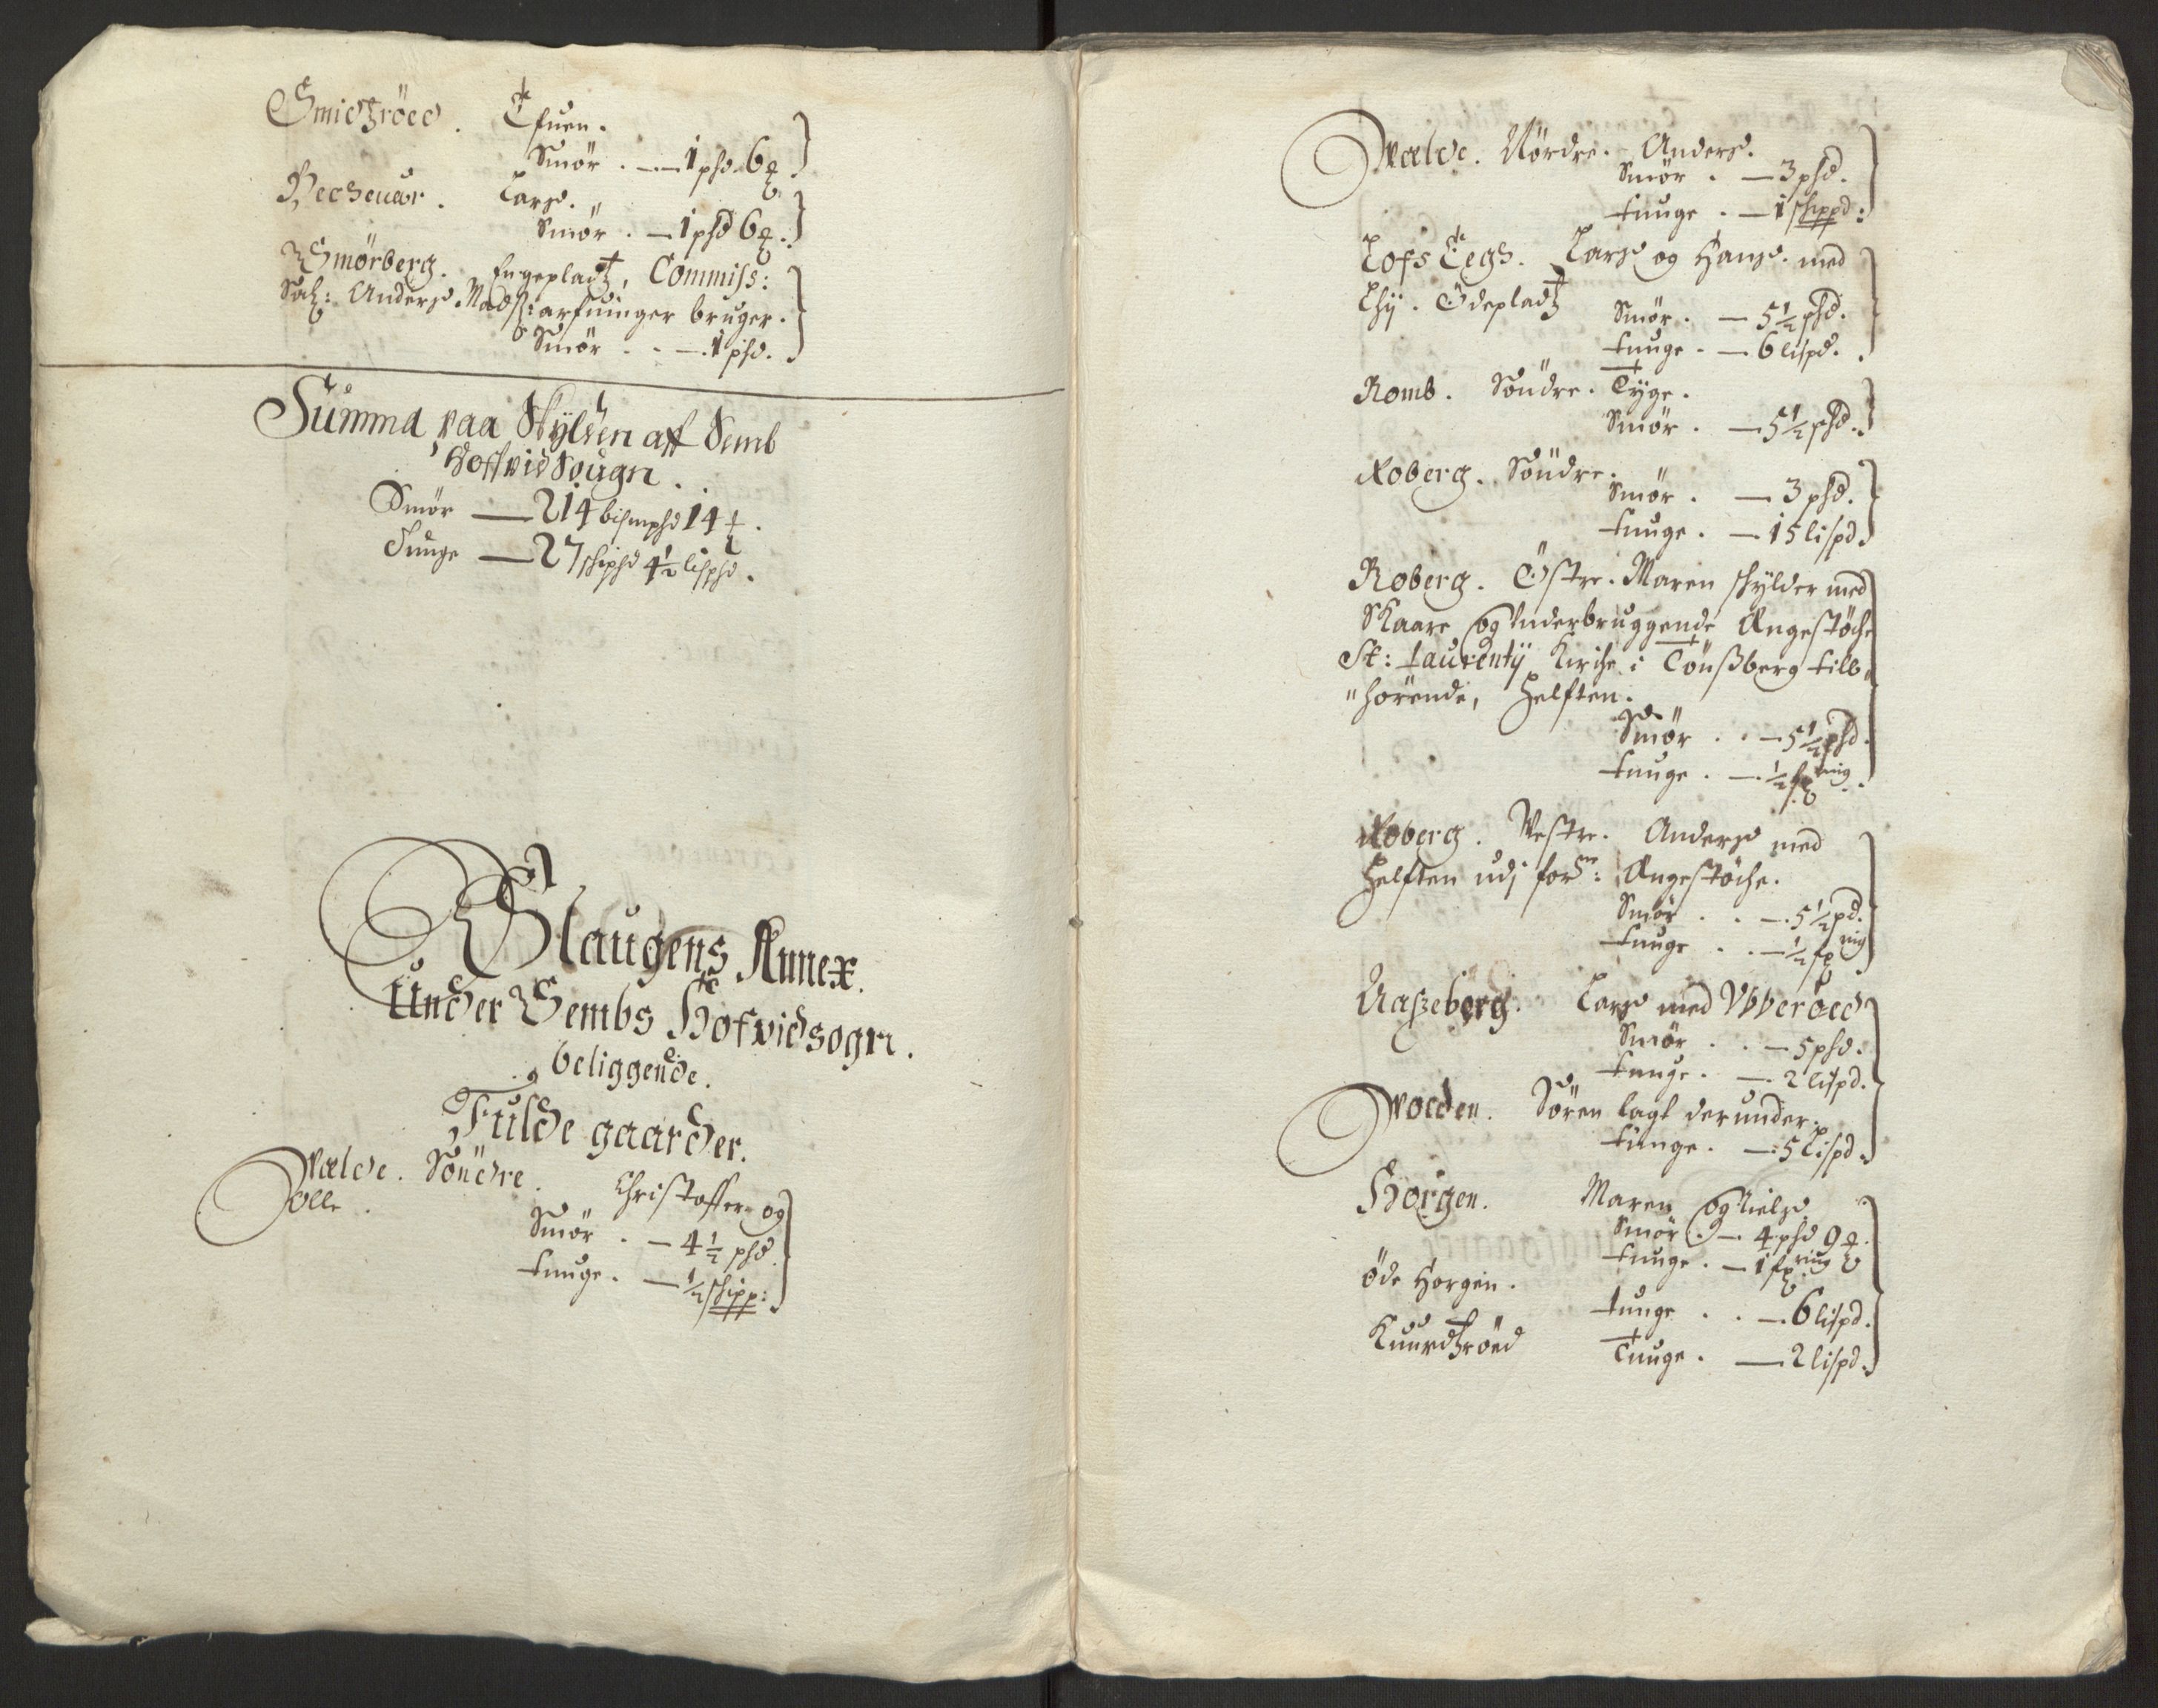 Smidtzröed. Efuen.
Smör. — 1 phd 6 ℔
Lars.
Smör. — 1 phd 6 ℔.
Smörberg. Engepladtz, Commiss:
Sal: Anders Madss: arfuinger bruger.
Smör . . — 1 phd.
Summa paa Skylden aff Semb
Hoffvid Sougn.
Smör — 214 bismphd 14 ℔.
Tunge — 27 schiphd 4½ lisphd.
Slaugens Annex.
Under Sembs Hofvidsogn.
beliggende.
Fulde gaarder.
Wælde. Söndre. Christoffer og
Olle.
Smör. — 4½ phd.
tunge. — ½ schipp:
Wælde. Nördre. Anders.
Smör. — 3 phd.
tunge. — 1 schippd:
Lofs Eegs. Lars og Hans. med
Ødepladtz
Smör. — 5½ phd.
tunge. — 6 lispd.
Romb. Söndre. Tyge.
Smör. — 5½ phd.
Roberg. Söndre.
Smör. — 3 phd.
tunge. — 15 lispd.
Roberg. Östre. Maren skylder med
Skaare og Underbruggende Ængestöche
St: Laurentij Kirche i Tönßberg tilb
"hörende, Helften.
Smör . . — 5½ phd.
tunge. — ½ fr ring.
Roberg. Vestre. Anders med
Helften udj forn: Ængestöche.
Smör . . — 5½ pd.
tunge . . — ½ fr ring
Aaszeberg. Lars med Ubberöed
Smör . . — 5 phd.
tunge. — 2 lispd.
Woeden. Sören lagt derunder.
tunge. — 5 Lispd.
Horgen. Maren og Niels.
Smör. — 4 phd 9 ℔.
tunge. — 1 fr ring
Öde Horgen.
tunge . . — 6 lispd.
Knurdtzröed
Tunge. — 2 lispd.